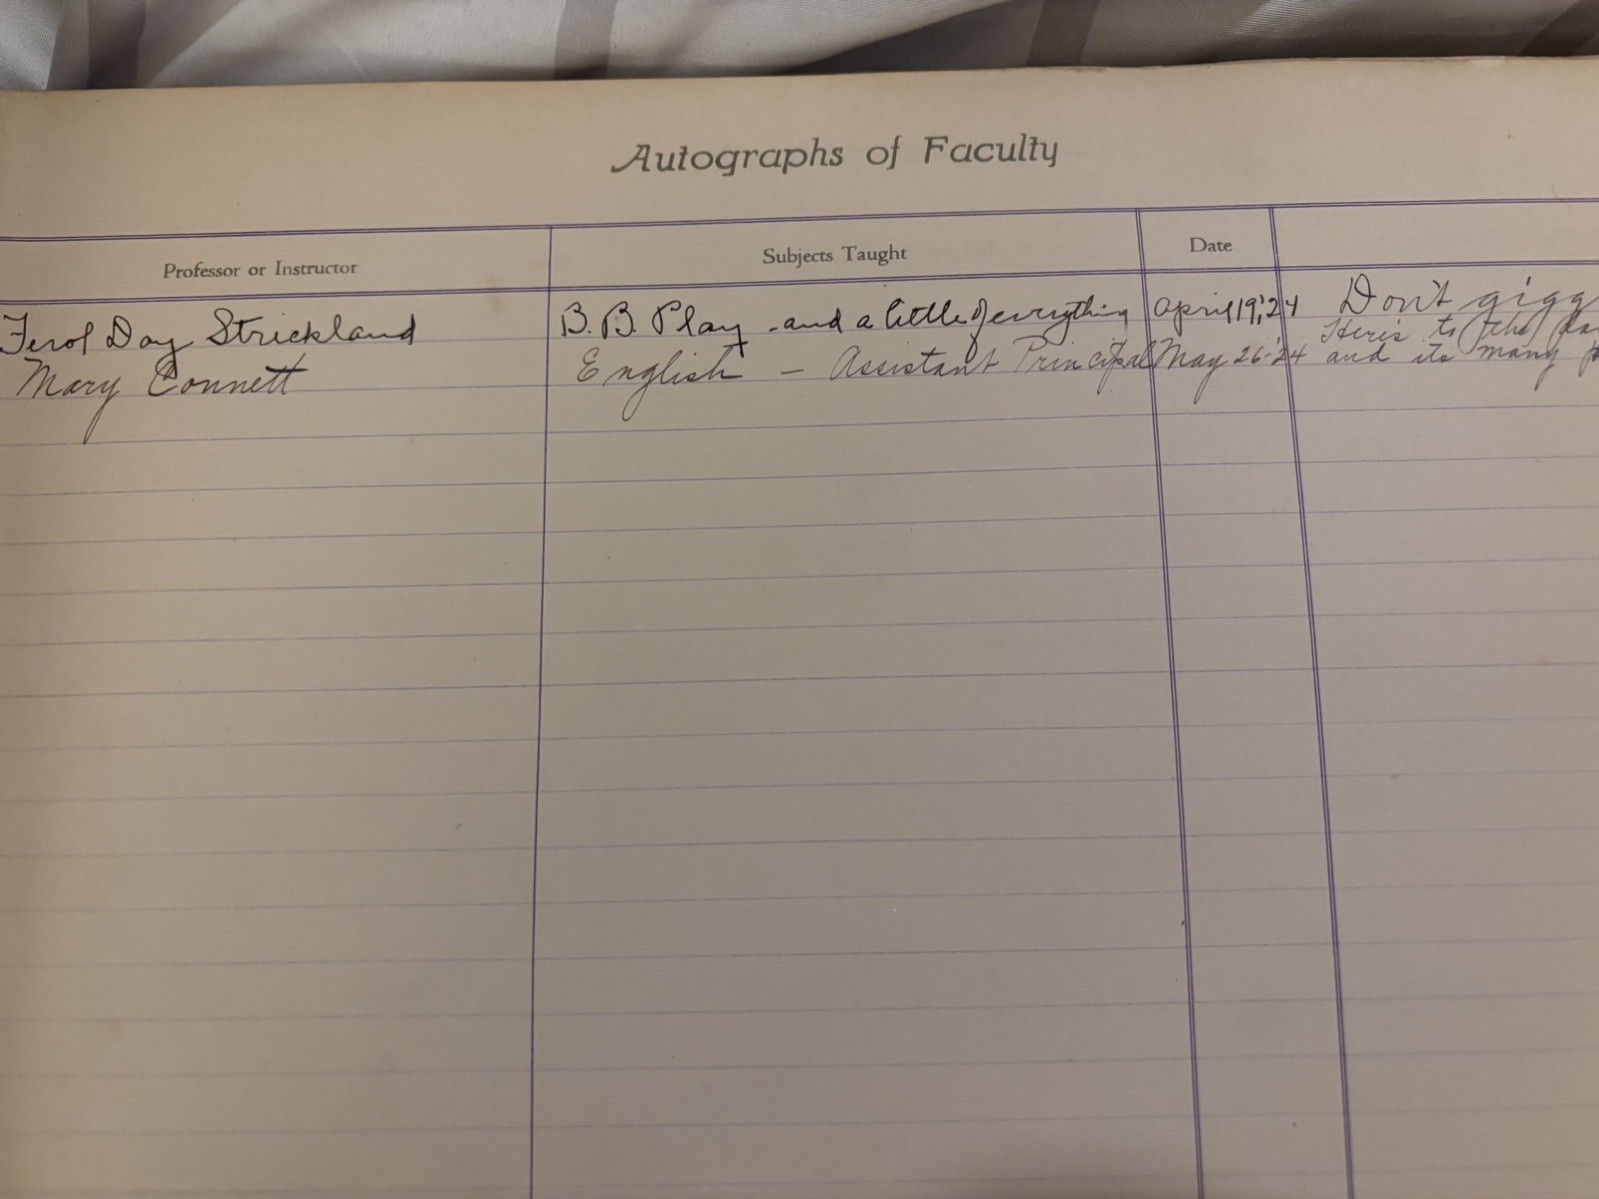 Autographs of Faculty
Professor or Instructor Subjects Taught Date
Ferol Day Strickland B. B. Play - and a little of everything April 19, '24 Don't gigg
Here's to the
Mary Connett English - Assistant Principal May 26-'24 and its many